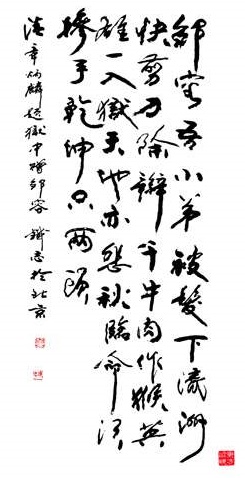 鄒容吾小弟被髮下瀛洲
快剪刀除辮干牛肉作猴英
雄一入獄天地亦悲秋臨命須
摻手乾坤只兩頭
章炳麟獄中贈鄒容於北京